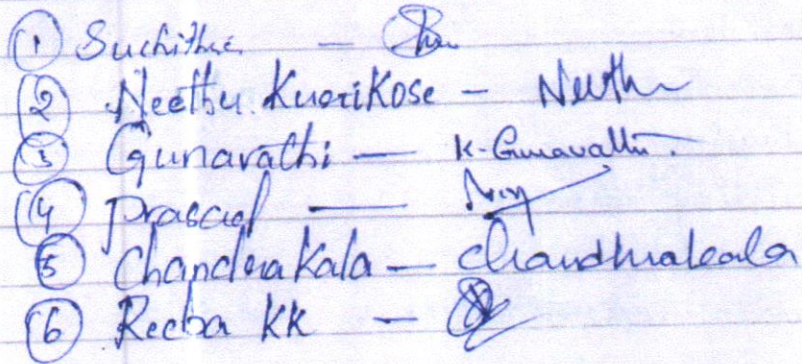 ① Suchithra —
② Neethu. Kuorikose – Neethu
③ Gunavathi — K. Gunavathi.
④ prasad —
⑤ Chandrakala — Chandhrakala
⑥ Reeba KK –